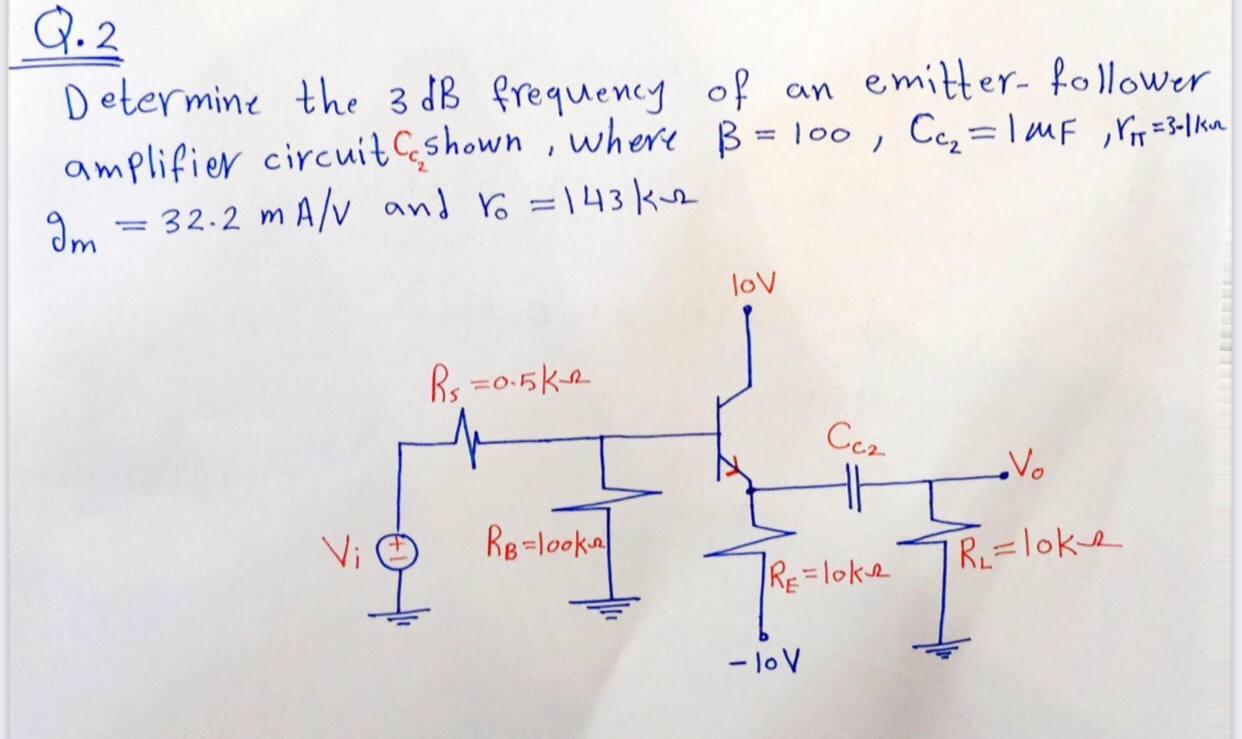 Q.2
Determine the 3 dB frequency of an emitter-follower
amplifier circuit Cc2 shown, where β = 100, Cc2 = 1 μF, rπ = 3.1 kΩ
gm = 32.2 mA/V and ro = 143 kΩ
10V
Rs = 0.5 kΩ
Cc2
Vo
Vi
+
−
RB = 100kΩ
RE = 10kΩ
RL = 10kΩ
-10V